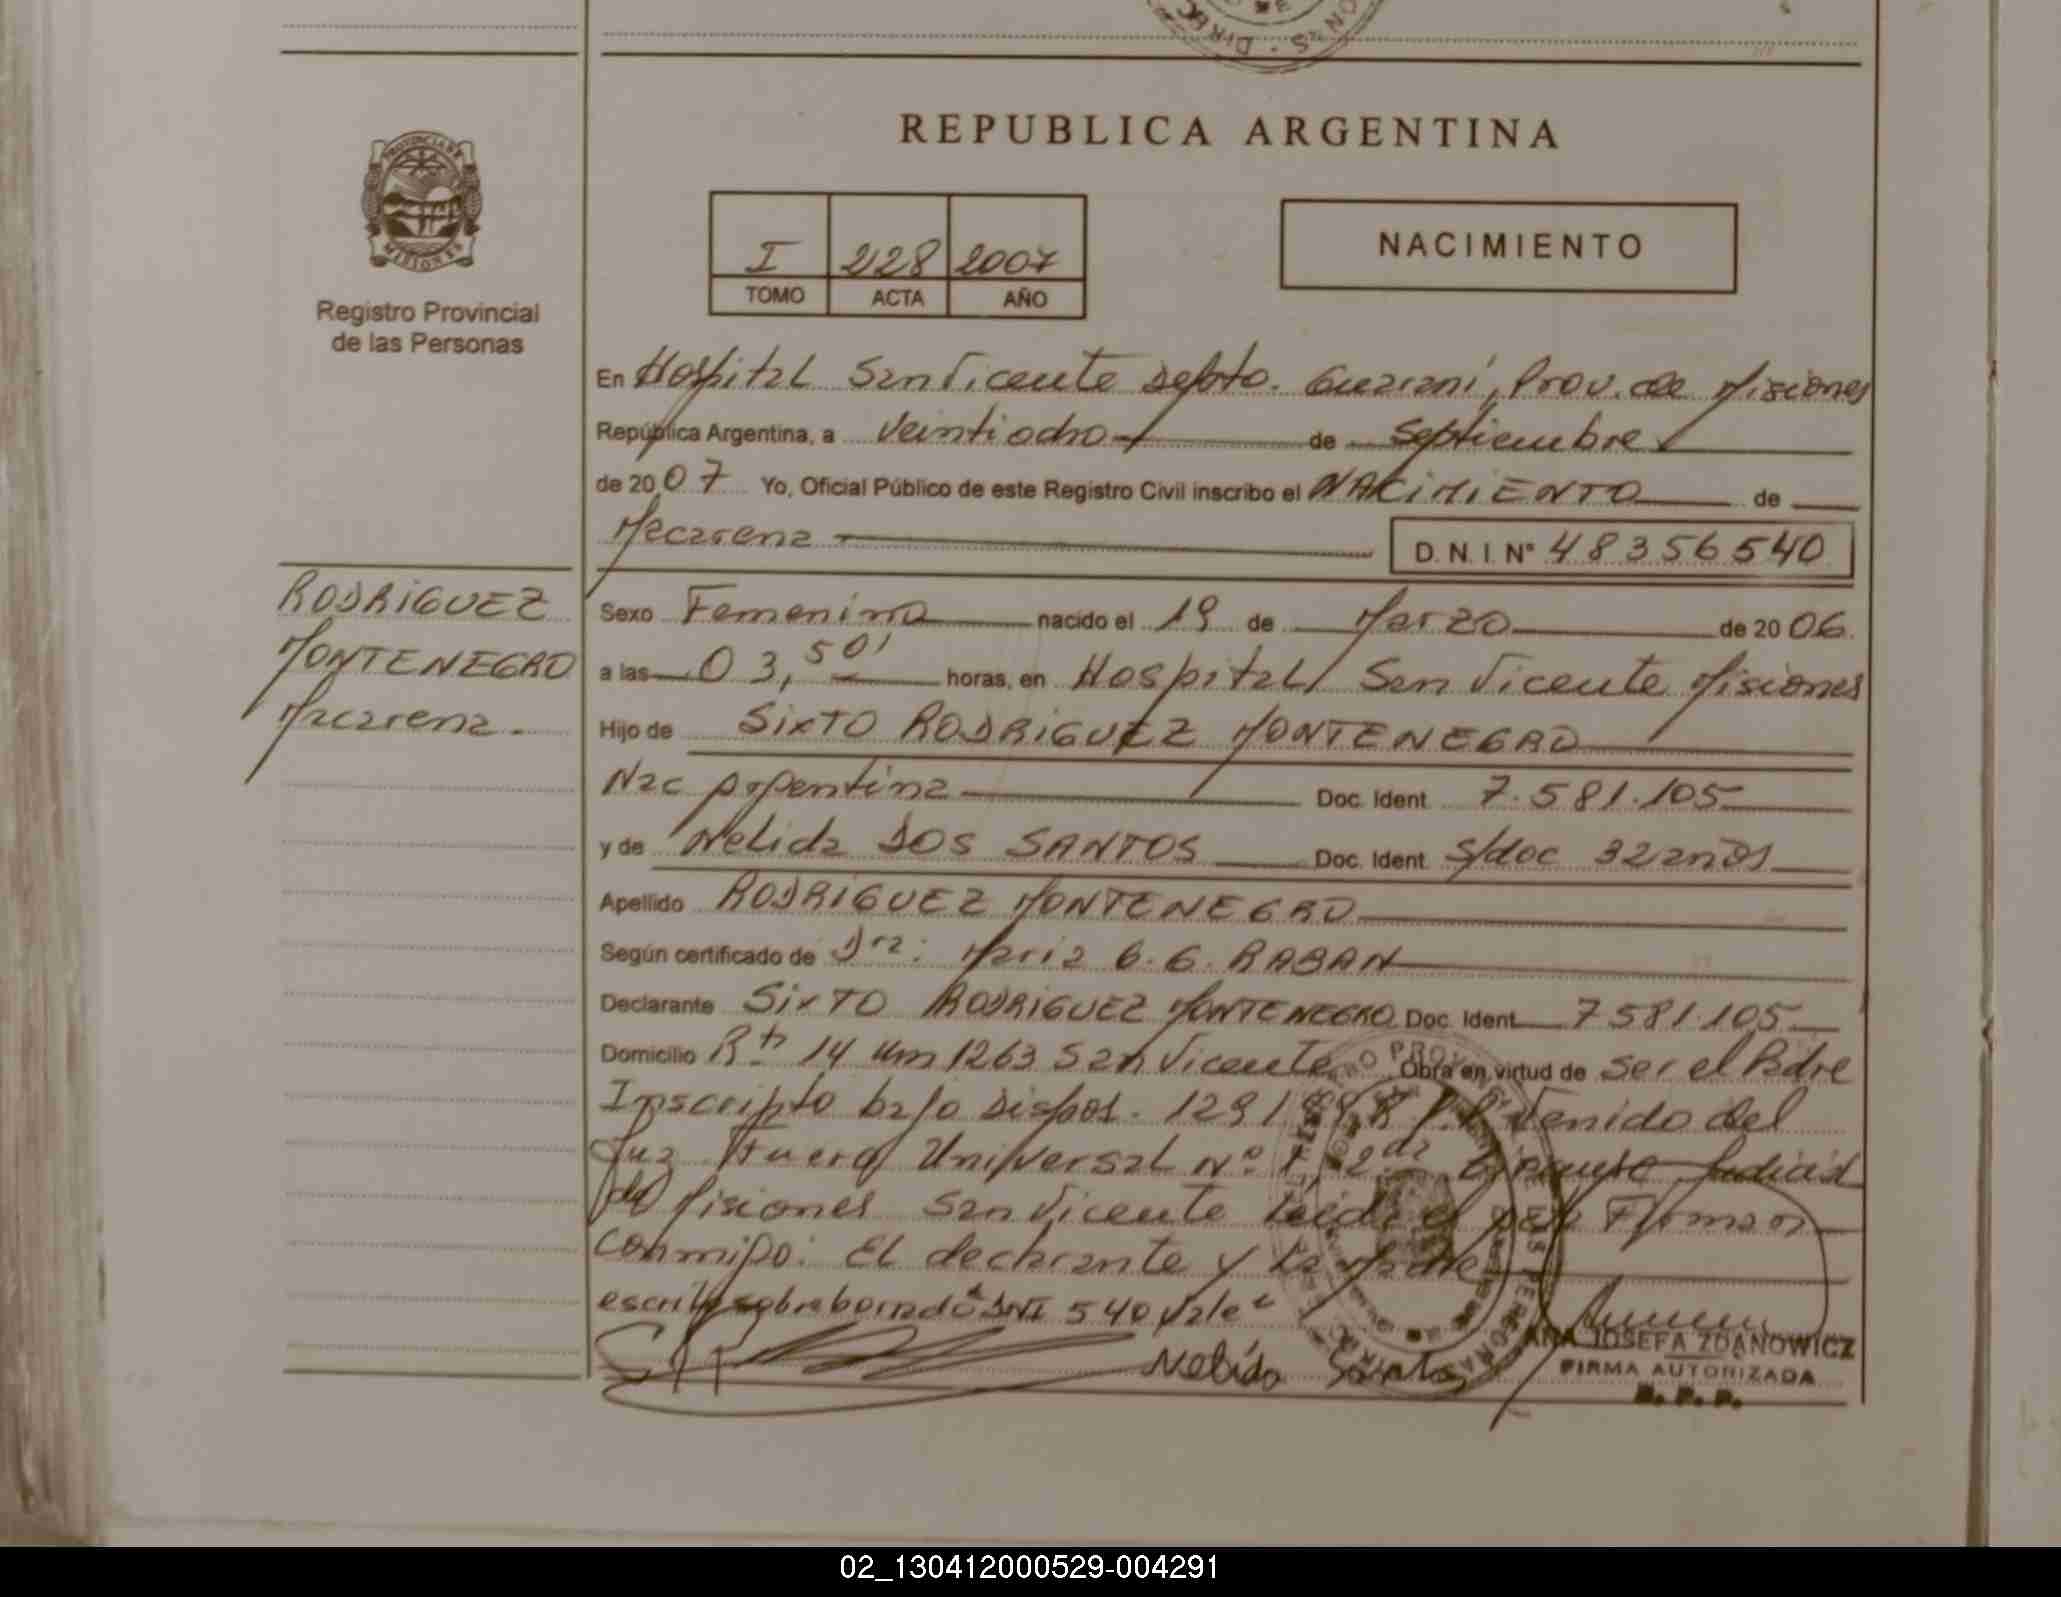 REPUBLICA ARGENTINA
PROVINCIA DE MISIONES
Registro Provincial
de las Personas
I 228 2007
TOMO ACTA AÑO
NACIMIENTO
En Hospital San Vicente Depto. Guaraní, Prov. de Misiones
República Argentina, a veintiocho de Septiembre
de 2007 Yo, Oficial Público de este Registro Civil inscribo el NACIMIENTO de
Macarena D.N.I. Nº 48356540
RODRIGUEZ
MONTENEGRO
Macarena.
Sexo Femenino nacido el 19 de Marzo de 2006.
a las 03,50' horas, en Hospital San Vicente Misiones
Hijo de SIXTO RODRIGUEZ MONTENEGRO
Nac Argentina Doc. Ident. 7.581.105
y de Nelida DOS SANTOS Doc. Ident. s/doc 32 años
Apellido RODRIGUEZ MONTENEGRO
Según certificado de Dra: Maria G. G. RABAN
Declarante SIXTO RODRIGUEZ MONTENEGRO Doc. Ident. 7581.105
Domicilio Rta 14 Km 1263 San Vicente Obra en virtud de ser el Padre
Inscripto bajo Dispos. 129 venido del
Juz Universal Nº 1, 2da Judicial
de Misiones San Vicente Leída el acta Firman
conmigo: El declarante y la Madre
escrito sobre borrado DNI 540 Vale
Nelida Santos
ANA JOSEFA ZDANOWICZ
FIRMA AUTORIZADA
R. P. P.
02_130412000529-004291